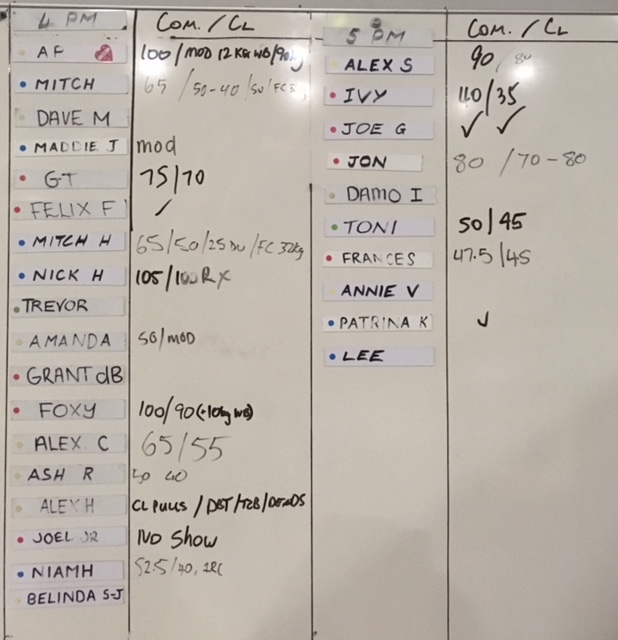 4 PM COM. / CL
AF 100/MOD 12 KG WB/90kg
MITCH 65 / 50-40 /SU/FC
DAVE M
MADDIE J mod
GT 75/70
FELIX F ✓
MITCH H 65/50/25DU/FC 32kg
NICK H 105/100RX
TREVOR
AMANDA 50/MOD
GRANT dB
FOXY 100/90(+10kg WB)
ALEX C 65/55
ASH R 50 40
ALEX H CL PULLS / DBT/T2B/
JOEL JR NO SHOW
NIAMH 52.5/40,
BELINDA S-J
5 PM COM. / CL
ALEX S 90/ 80
IVY 40/35
JOE G ✓ ✓
JON 80 /70-80
DAMO I
TONI 50/45
FRANCES 47.5/45
ANNIE V
PATRINA K ✓
LEE